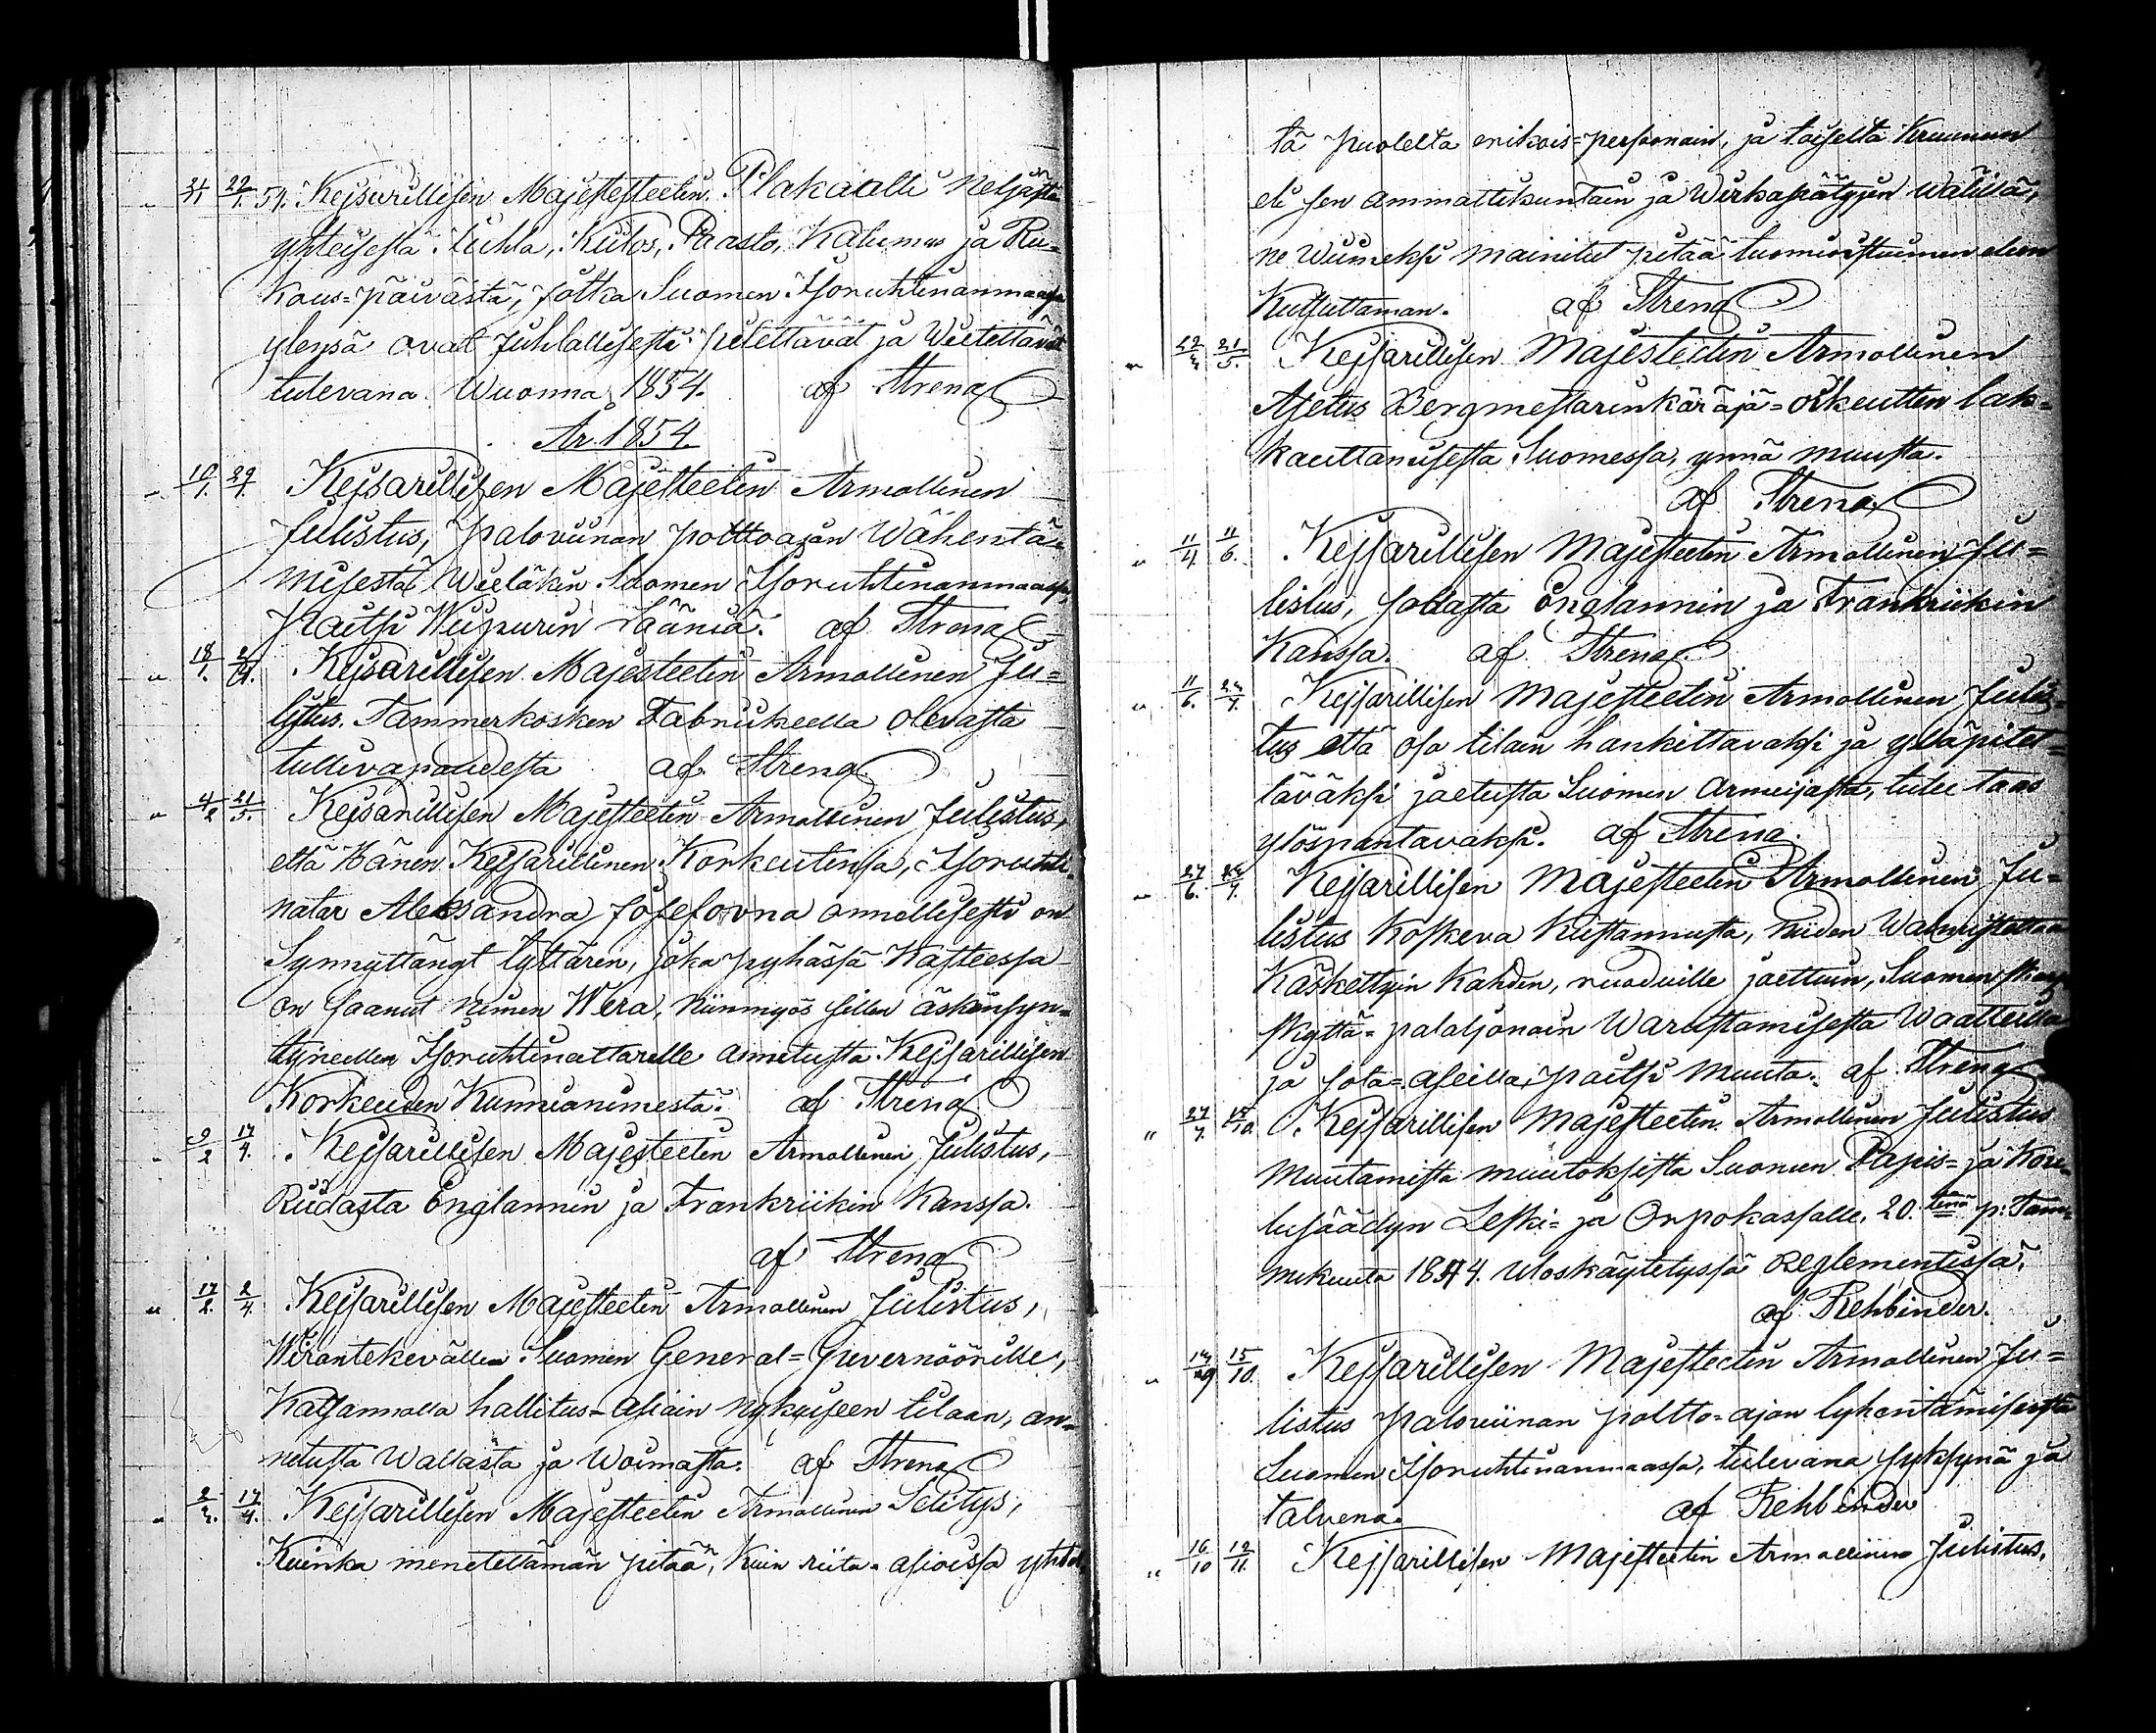 22/1. 54. Kejsarillisen Majestesteetin Plakaatti Neljästä
yhteisestä Juhla, Kiitos, Paasto, Katumus ja Ru-
kous-päivästä, jotka Suomen Isoruhtinanmaassa
ylensä ovat Juhlallisesti pidettävät ja Vietettävät
tulevana Wuonna 1854. af Streng
År 1854.
" 10/1. 29/1. Kejsarillisen Majesteetin Armollinen
Julistus, paloviinan polttoajan Wähentä-
misestä Wieläkin Suomen Isoruhtinanmaassa,
Paitsi Wiipurin Lääniä. af Streng
" 18/1. 2/4. Kejsarillisen Majesteetin Armollinen Ju-
listus Tammerkosken Fabriikeilla olevasta
tullivapaudesta af Streng
" 4/2 21/5. Kejsarillisen Majesteetin Armollinen Julistus,
että Hänen Kejsarillinen Korkeutensa, Isoruhti-
natar Aleksandra Josefovna onnellisesti on
Synnyttänyt tyttären, joka pyhässä Kasteessa
on saanut nimen Wera, Niinmyös sillen äskensyn-
tyneellen Isoruhtinattarelle annetusta Kejsarillisen
Korkeuden Kunnianimestä. af Streng
" 9/2 17/4. Kejsarillisen Majesteetin Armollinen Julistus,
Riidasta Englannin ja Frankriikin Kanssa.
af Streng
" 17/2. 2/4. Kejsarillisen Majesteetin Armollinen Julistus,
Wirantekevällen Suomen General-Guvernöörille,
Katsannolla hallitus-asiain nykyiseen tilaan, an-
netusta Wallasta ja Woimasta. af Streng
" 17/4. Kejsarillisen Majesteetin Armollinen Selitys,
Kuinka meneteltämän pitää, Kuin riita-asioissa yhdel-
tä puolelta erikois-personain, ja toiselta Kruunun
eli sen ammattikuntain ja Wirkasäätyjen Wälillä,
ne Wiimeksi mainitut pitää tuomioistuimen eteen
Kutsuttaman. af Streng
" 21/5. Kejsarillisen Majesteetin Armollinen
Asetus Bergmestarinkäräjä-oikeutten lak-
kauttamisesta Suomessa, ynnä muusta.
af Streng
" 11/4 11/6. Kejsarillisen Majesteetin Armollinen Ju-
listus, sodasta Englannin ja Frankriikin
Kanssa. af Streng
" 11/6. Kejsarillisen Majesteetin Armollinen Julis-
tus että osa tilain hankittavaksi ja ylläpitet-
täväksi jaetusta Suomen Armeijasta, tulee taas
ylöspantavaksi. af Streng.
" 27/6. Kejsarillisen Majesteetin Armollinen Ju-
listus Koskeva Kustannusta, niiden Walmistettaa
Käskettyin Kahden, ruoduille jaettuin, Suomen
skyttä-pataljonain Warustamisesta Waatteilla
ja sota-aseilla, paitsi muuta. af Streng
" 27/7. Kejsarillisen Majesteetin Armollinen Julistus
Muutamista muutoksista Suomen Papis- ja Kou-
lusäädyn Leski- ja Orpokassalle, 20.tenä p: Tam-
mikuuta 1874. Uloskäytetyssä Reglementissä.
af Rehbinder.
" 15/10. Kejsarillisen Majesteetin Armollinen Ju-
listus paloviinan poltto-ajan lyhentämisestä
Suomen Isoruhtinanmaassa, tulevana syksynä ja
talvena. af Rehbinder
" 16/10 12/11. Kejsarillisen Majesteetin Armollinen Julistus,